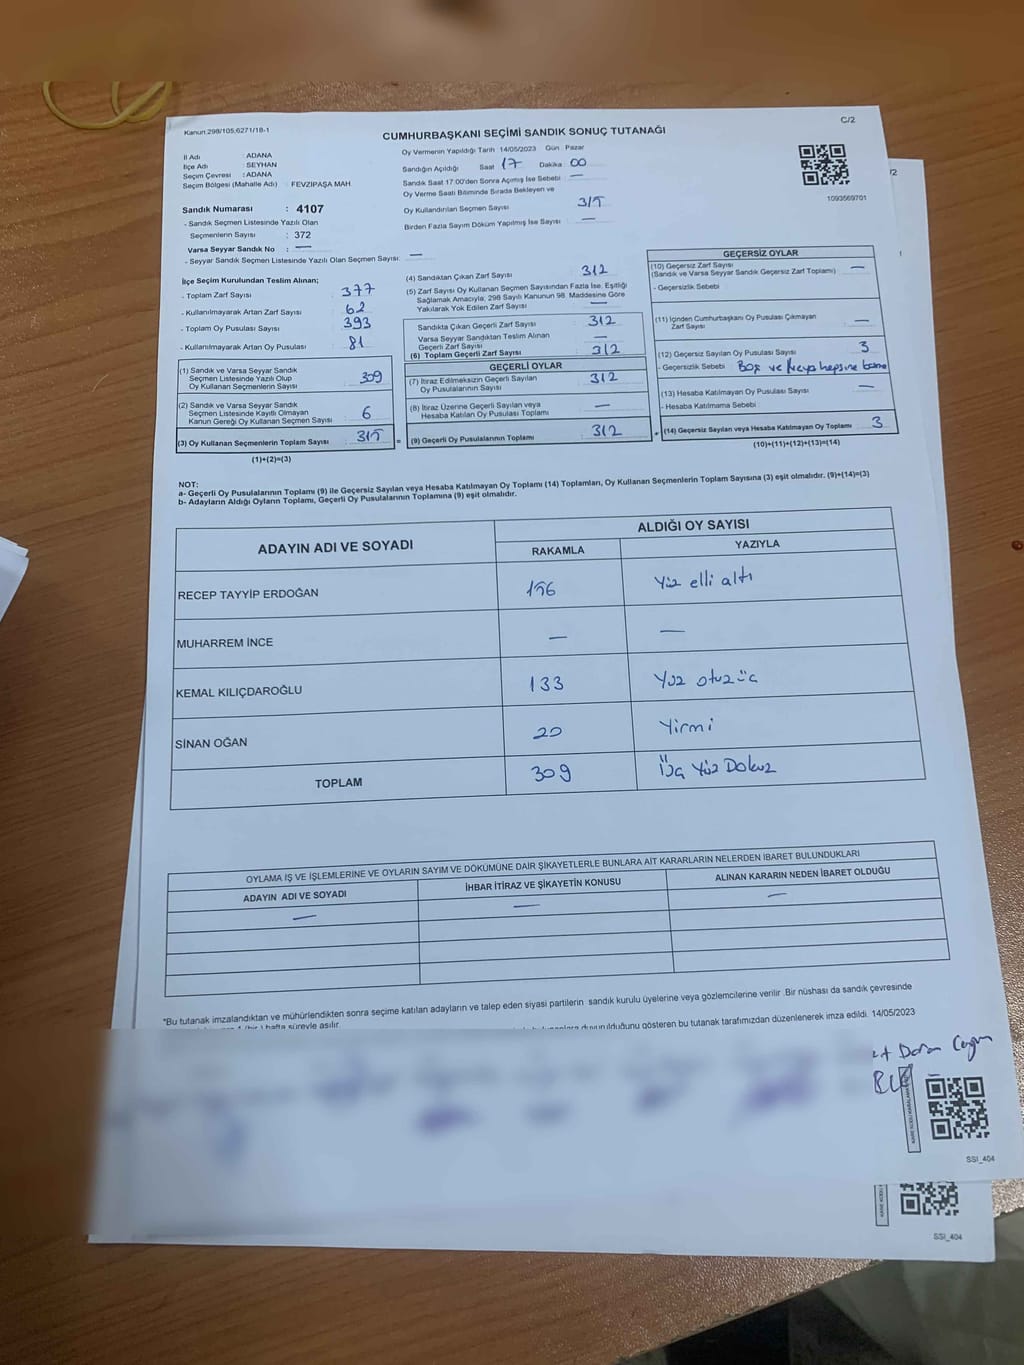 Kanun:298/105,6271/18-1
C/2
CUMHURBAŞKANI SEÇİMİ SANDIK SONUÇ TUTANAĞI
İl Adı : ADANA
İlçe Adı : SEYHAN
Seçim Çevresi : ADANA
Seçim Bölgesi (Mahalle Adı) : FEVZİPAŞA MAH.
Sandık Numarası : 4107
- Sandık Seçmen Listesinde Yazılı Olan
Seçmenlerin Sayısı : 372
Varsa Seyyar Sandık No : —
- Seyyar Sandık Seçmen Listesinde Yazılı Olan Seçmen Sayısı: —
Oy Vermenin Yapıldığı Tarih 14/05/2023 Gün : Pazar
Sandığın Açıldığı Saat 17 Dakika 00
Sandık Saat 17.00'den Sonra Açılmış İse Sebebi —
Oy Verme Saati Bitiminde Sırada Bekleyen ve
Oy Kullandırılan Seçmen Sayısı 315
Birden Fazla Sayım Döküm Yapılmış İse Sayısı —
1093569701
İlçe Seçim Kurulundan Teslim Alınan;
- Toplam Zarf Sayısı 377
- Kullanılmayarak Artan Zarf Sayısı 62
- Toplam Oy Pusulası Sayısı 393
- Kullanılmayarak Artan Oy Pusulası 81
(1) Sandık ve Varsa Seyyar Sandık
Seçmen Listesinde Yazılı Olup
Oy Kullanan Seçmenlerin Sayısı 309
(2) Sandık ve Varsa Seyyar Sandık
Seçmen Listesinde Kayıtlı Olmayan
Kanun Gereği Oy Kullanan Seçmen Sayısı 6
(3) Oy Kullanan Seçmenlerin Toplam Sayısı 315 =
(1)+(2)=(3)
(4) Sandıktan Çıkan Zarf Sayısı 312
(5) Zarf Sayısı Oy Kullanan Seçmen Sayısından Fazla İse, Eşitliği
Sağlamak Amacıyla, 298 Sayılı Kanunun 98. Maddesine Göre
Yakılarak Yok Edilen Zarf Sayısı —
Sandıkta Çıkan Geçerli Zarf Sayısı 312
Varsa Seyyar Sandıktan Teslim Alınan
Geçerli Zarf Sayısı —
(6) Toplam Geçerli Zarf Sayısı 312
GEÇERLİ OYLAR
(7) İtiraz Edilmeksizin Geçerli Sayılan
Oy Pusulalarının Sayısı 312
(8) İtiraz Üzerine Geçerli Sayılan veya
Hesaba Katılan Oy Pusulası Toplamı —
(9) Geçerli Oy Pusulalarının Toplamı 312 +
GEÇERSİZ OYLAR
(10) Geçersiz Zarf Sayısı
(Sandık ve Varsa Seyyar Sandık Geçersiz Zarf Toplamı) —
- Geçersizlik Sebebi
(11) İçinden Cumhurbaşkanı Oy Pusulası Çıkmayan
Zarf Sayısı —
(12) Geçersiz Sayılan Oy Pusulası Sayısı 3
- Geçersizlik Sebebi Boş ve veya hepsine
(13) Hesaba Katılmayan Oy Pusulası Sayısı —
- Hesaba Katılmama Sebebi :
(14) Geçersiz Sayılan veya Hesaba Katılmayan Oy Toplamı 3
(10)+(11)+(12)+(13)=(14)
NOT:
a- Geçerli Oy Pusulalarının Toplamı (9) ile Geçersiz Sayılan veya Hesaba Katılmayan Oy Toplamı (14) Toplamları, Oy Kullanan Seçmenlerin Toplam Sayısına (3) eşit olmalıdır. (9)+(14)=(3)
b- Adayların Aldığı Oyların Toplamı, Geçerli Oy Pusulalarının Toplamına (9) eşit olmalıdır.
ADAYIN ADI VE SOYADI
ALDIĞI OY SAYISI
RAKAMLA YAZIYLA
RECEP TAYYİP ERDOĞAN 156 Yüz elli altı
MUHARREM İNCE — —
KEMAL KILIÇDAROĞLU 133 Yüz otuz üç
SİNAN OĞAN 20 Yirmi
TOPLAM 309 Üç Yüz Dokuz
OYLAMA İŞ VE İŞLEMLERİNE VE OYLARIN SAYIM VE DÖKÜMÜNE DAİR ŞİKAYETLERLE BUNLARA AİT KARARLARIN NELERDEN İBARET BULUNDUKLARI
ADAYIN ADI VE SOYADI İHBAR İTİRAZ VE ŞİKAYETİN KONUSU ALINAN KARARIN NEDEN İBARET OLDUĞU
— — —
*Bu tutanak imzalandıktan ve mühürlendikten sonra seçime katılan adayların ve talep eden siyasi partilerin sandık kurulu üyelerine veya gözlemcilerine verilir .Bir nüshası da sandık çevresinde
1 (bir ) hafta süreyle asılır.
duyurulduğunu gösteren bu tutanak tarafımızdan düzenlenerek imza edildi. 14/05/2023
SSI_404
SSI_404